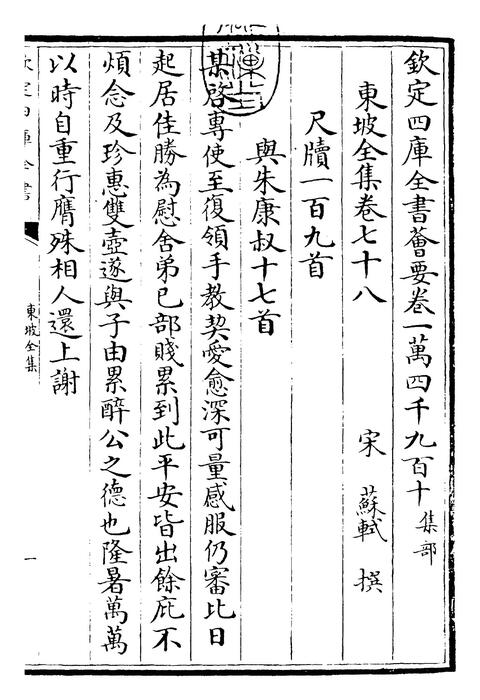 欽定四庫全書薈要卷一萬四千九百十集部
東坡全集卷七十八
宋 蘇軾 撰
尺牘一百九首
與朱康叔十七首
某啓專使至復領手教契愛愈深可量感服仍審比日
起居佳勝為慰舍弟已部賤累到此平安皆出餘庇不
煩念及珍惠雙壺遂與子由累醉公之德也隆暑萬萬
以時自重行膺殊相人還上謝
欽定四庫全書
東坡全集
一